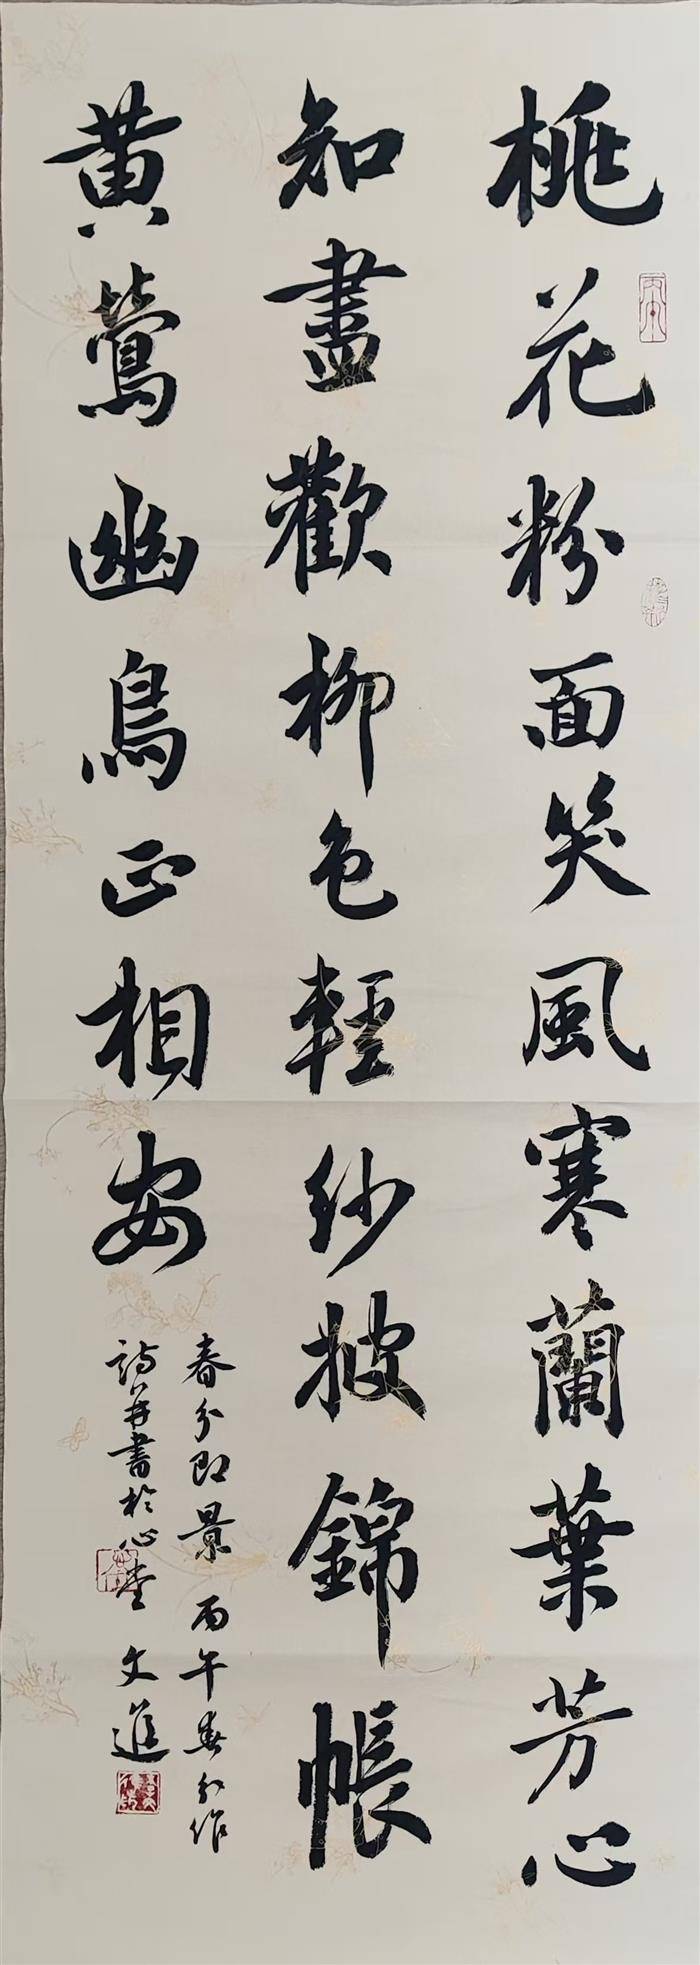 桃花粉面笑風寒蘭葉芳心
知盡歡柳色輕紗披錦帳
黃鶯幽鳥正相安
春分即景 丙午春分作
詩并書於心堂 文進
丙午